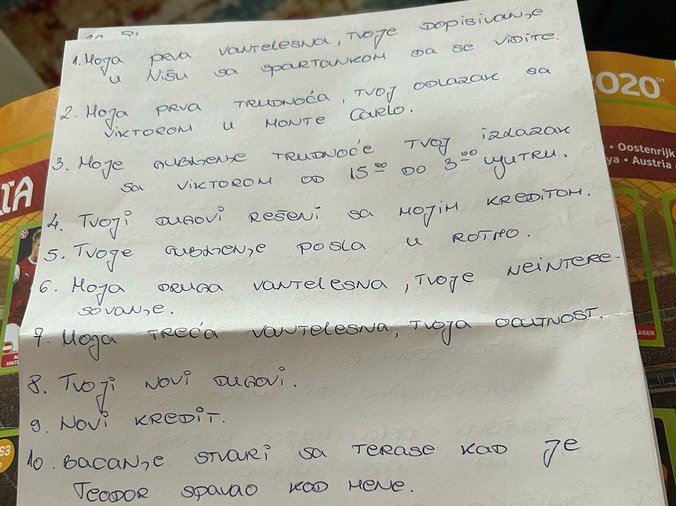 1. Moja prva vantelesna, tvoje dopisivanje
u Nišu sa spartankom da se vidite.
2. Moja prva trudnoća, tvoj odlazak sa
Viktorom u Monte Carlo.
3. Moje gubljenje trudnoće tvoj izlazak
sa Viktorom od 15⁰⁰ do 3⁰⁰ ujutru.
4. Tvoji dugovi rešeni sa mojim kreditom.
5. Tvoje gubljenje posla u Rotmo.
6. Moja druga vantelesna, tvoje neintere-
sovanje.
7. Moja treća vantelesna, tvoja odutnost.
8. Tvoji novi dugovi.
9. Novi kredit.
10. Bacanje stvari sa terase kad je
Teodor spavao kod mene.
2020™
• Oostenrijk
• Austria
IA
LAGER
63